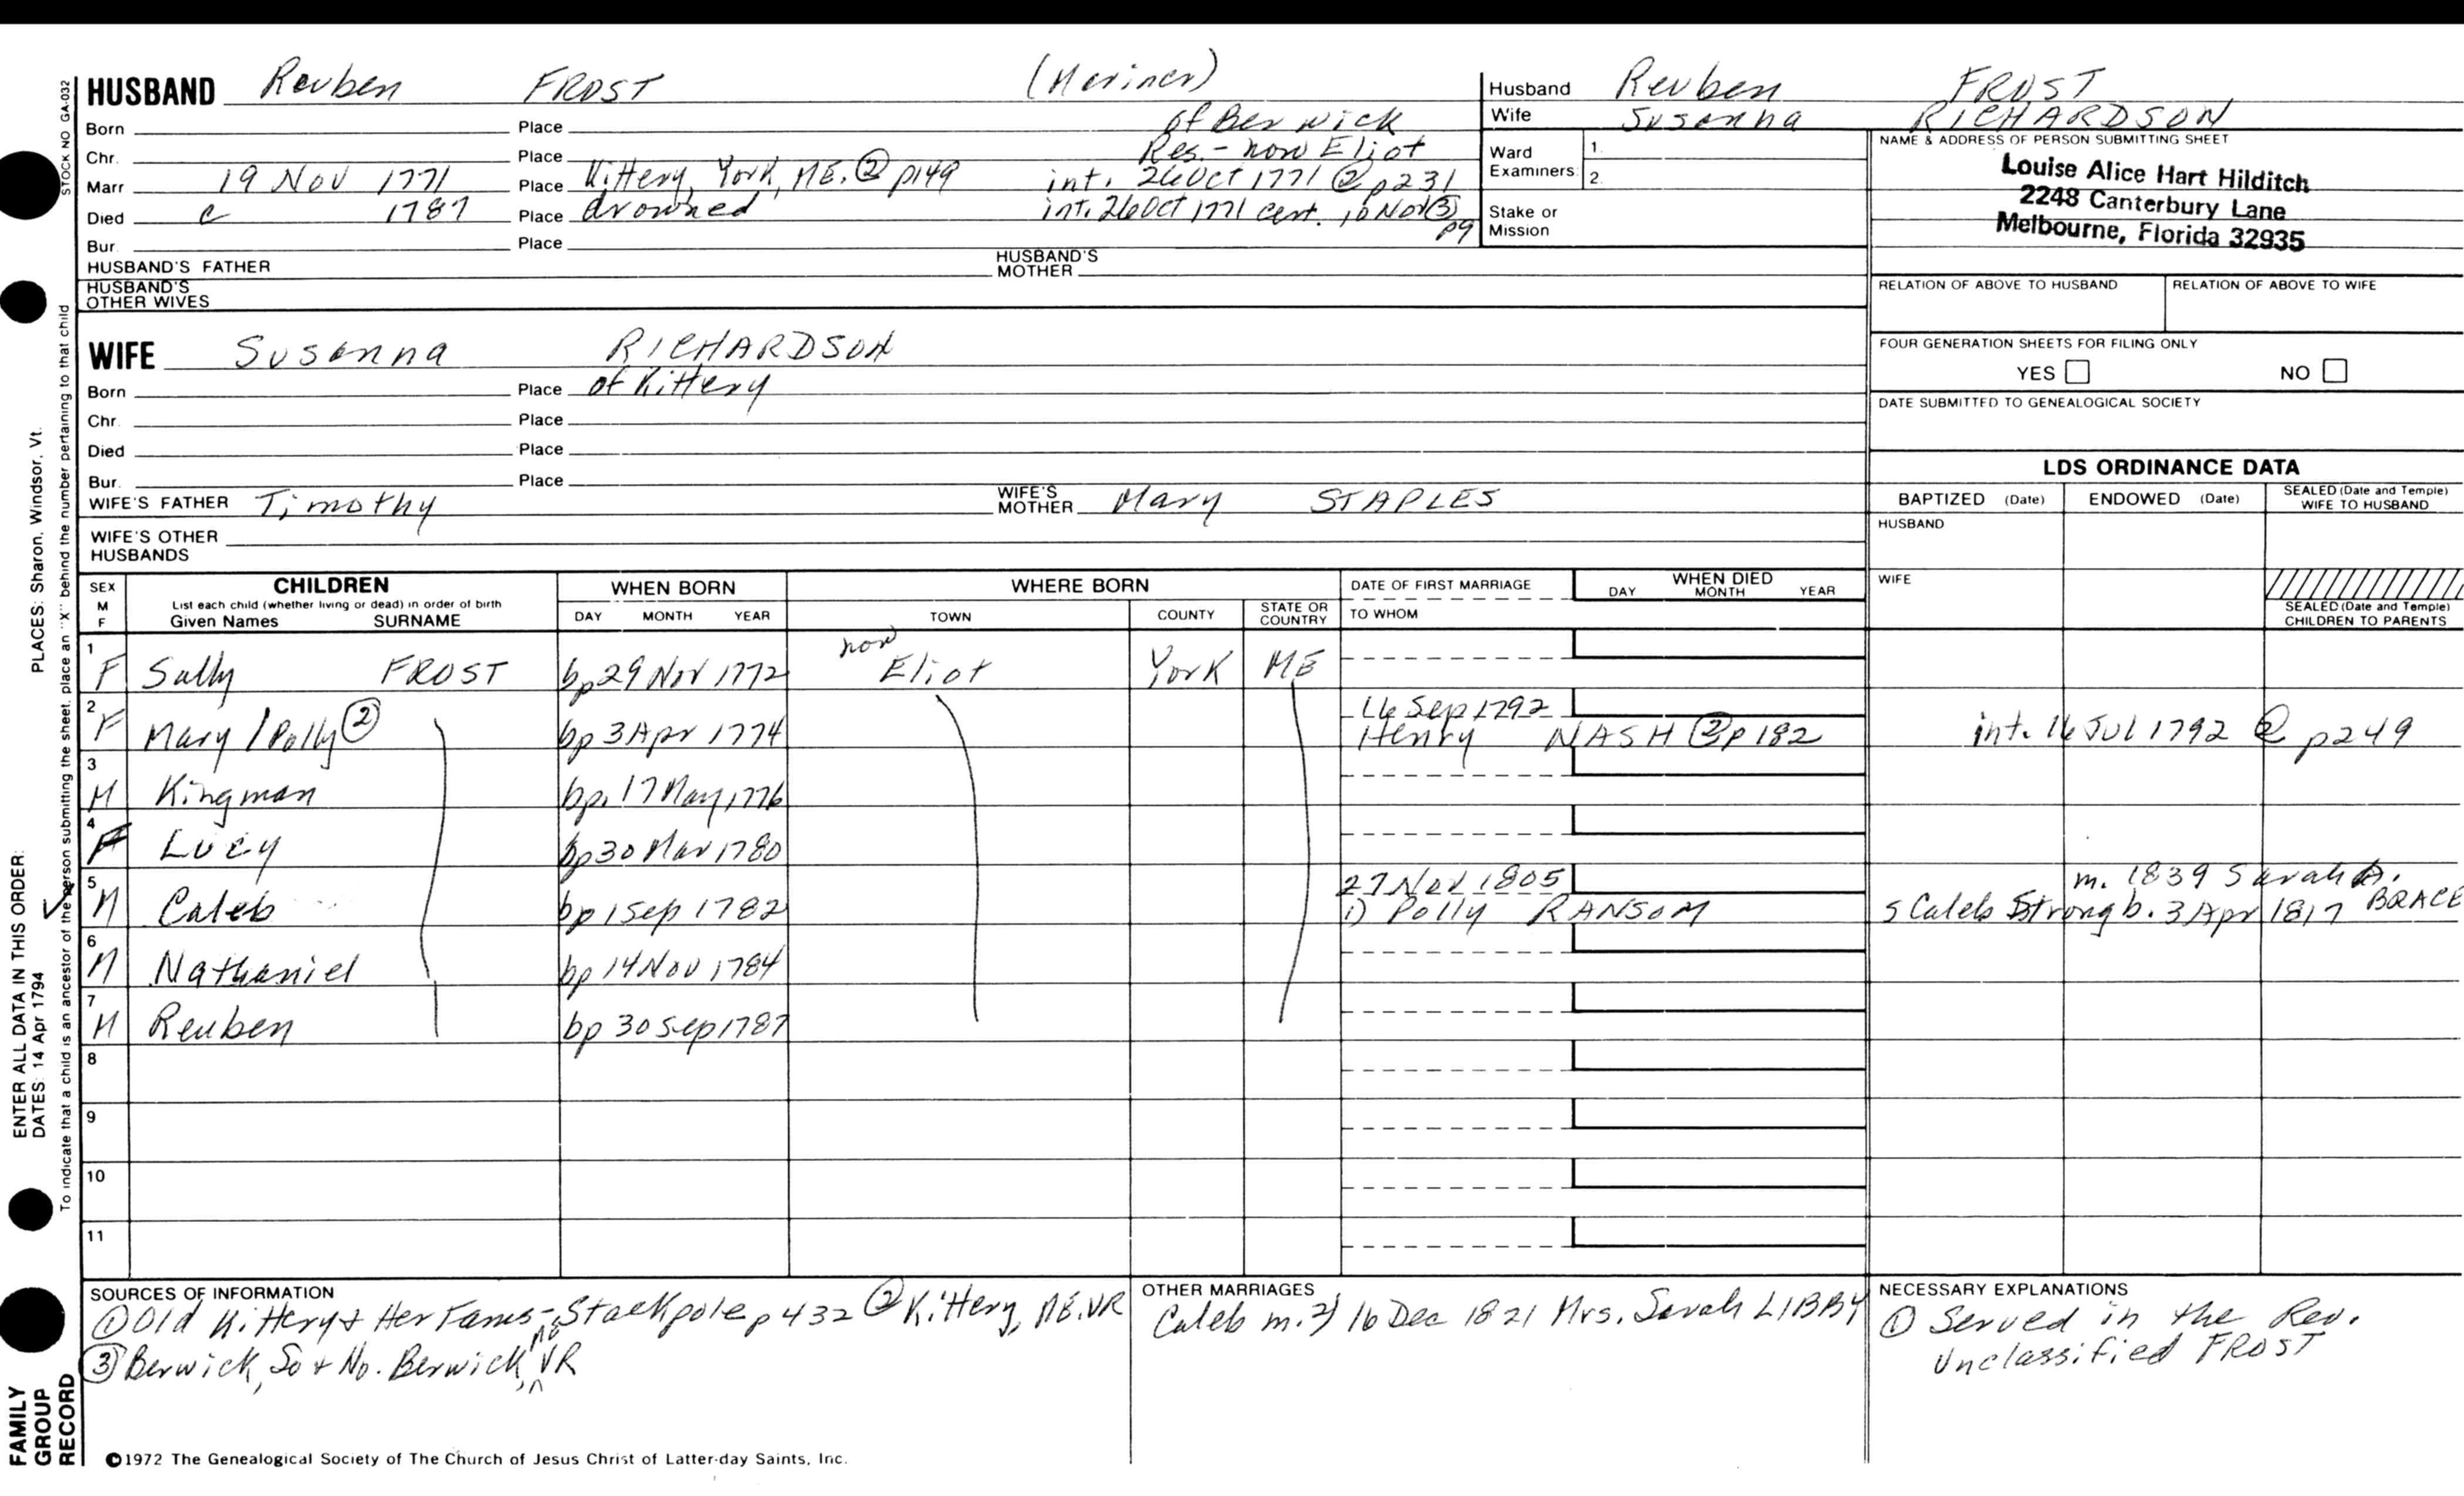 HUSBAND Reuben FROST (Mariner)
Born Place of Berwick
Chr. Place Res. - now Eliot
Marr 19 Nov 1771 Place Kittery, York, ME. ② p149 int. 26 Oct 1771 ② p231
Died c 1787 Place drowned int. 26 Oct 1771 cert. 10 Nov ③ p9
Bur. Place
HUSBAND'S FATHER HUSBAND'S MOTHER
HUSBAND'S OTHER WIVES
Husband Reuben FROST
Wife Susanna RICHARDSON
Ward Examiners 1. 2.
Stake or Mission
NAME & ADDRESS OF PERSON SUBMITTING SHEET
Louise Alice Hart Hilditch
2248 Canterbury Lane
Melbourne, Florida 32935
RELATION OF ABOVE TO HUSBAND RELATION OF ABOVE TO WIFE
FOUR GENERATION SHEETS FOR FILING ONLY
YES NO
DATE SUBMITTED TO GENEALOGICAL SOCIETY
WIFE Susanna RICHARDSON
Born Place of Kittery
Chr. Place
Died Place
Bur. Place
WIFE'S FATHER Timothy WIFE'S MOTHER Mary STAPLES
WIFE'S OTHER HUSBANDS
LDS ORDINANCE DATA
BAPTIZED (Date) ENDOWED (Date) SEALED (Date and Temple) WIFE TO HUSBAND
HUSBAND
WIFE
SEALED (Date and Temple) CHILDREN TO PARENTS
SEX M F
CHILDREN
List each child (whether living or dead) in order of birth
Given Names SURNAME
WHEN BORN
DAY MONTH YEAR
WHERE BORN
TOWN COUNTY STATE OR COUNTRY
DATE OF FIRST MARRIAGE
TO WHOM
WHEN DIED
DAY MONTH YEAR
1 F Sally FROST bp 29 Nov 1772 now Eliot York ME
2 F Mary / Polly ② bp 3 Apr 1774 16 Sep 1792
Henry NASH ② p182 int. 16 Jul 1792 ② p249
3 M Kingman bp. 17 May 1776
4 F Lucy bp 30 Mar 1780
5 M Caleb bp 1 Sep 1782 27 Nov 1805 m. 1839 Sarah A. BRACE
1) Polly RANSOM s Caleb Strong b. 3 Apr 1817
6 M Nathaniel bp 14 Nov 1784
7 M Reuben bp 30 Sep 1787
8
9
10
11
SOURCES OF INFORMATION
① Old Kittery & Her Fams - Stackpole p 432 ② Kittery, ME. VR
③ Berwick, So & No. Berwick, ME VR
OTHER MARRIAGES
Caleb m. 2) 16 Dec 1821 Mrs. Sarah LIBBY
NECESSARY EXPLANATIONS
① Served in the Rev.
Unclassified FROST
©1972 The Genealogical Society of The Church of Jesus Christ of Latter-day Saints, Inc.
STOCK NO GA-032
To indicate that a child is an ancestor of the person submitting the sheet, place an "X" behind the number pertaining to that child
PLACES: Sharon, Windsor, Vt.
ENTER ALL DATA IN THIS ORDER:
DATES: 14 Apr 1794
FAMILY GROUP RECORD